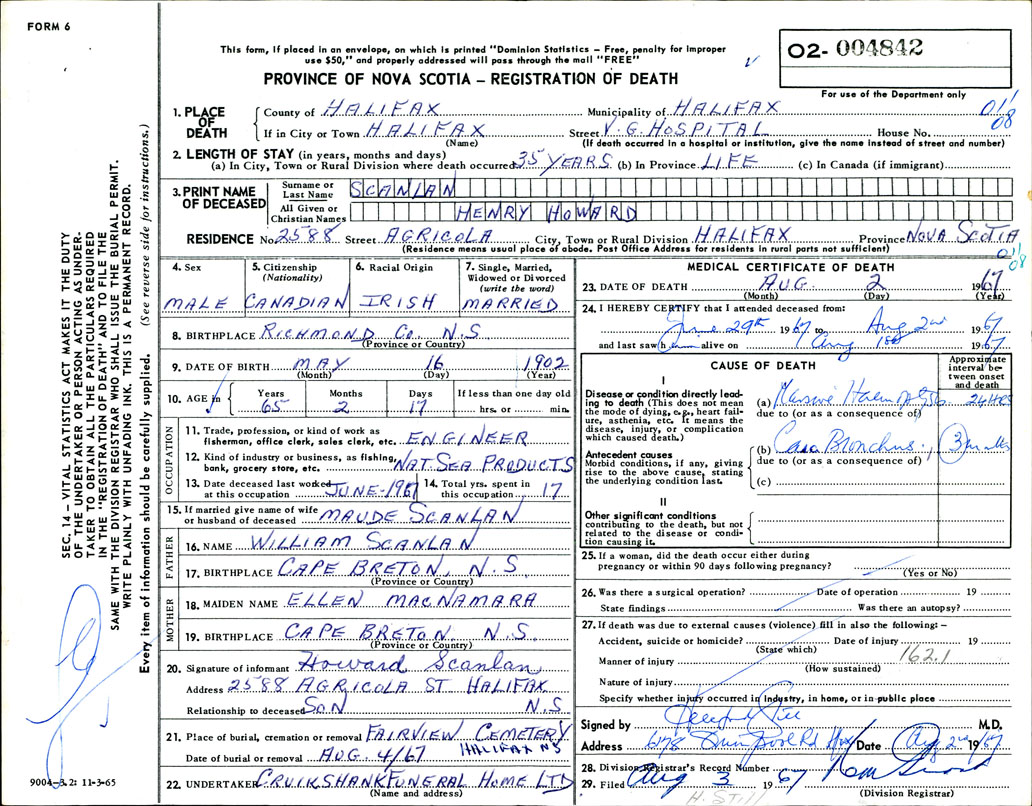 FORM 6
This form, if placed in an envelope, on which is printed "Dominion Statistics – Free, penalty for improper
use $50," and properly addressed will pass through the mail "FREE"
PROVINCE OF NOVA SCOTIA – REGISTRATION OF DEATH
02- 004842
For use of the Department only
011
08
1. PLACE OF DEATH
County of HALIFAX Municipality of HALIFAX
If in City or Town HALIFAX Street V. G. HOSPITAL House No.
(Name) (If death occurred in a hospital or institution, give the name instead of street and number)
2. LENGTH OF STAY (in years, months and days)
(a) In City, Town or Rural Division where death occurred 35 YEARS (b) In Province LIFE (c) In Canada (if immigrant)
3. PRINT NAME OF DECEASED
Surname or Last Name SCANLAN
All Given or Christian Names HENRY HOWARD
RESIDENCE No. 2588 Street AGRICOLA City, Town or Rural Division HALIFAX Province NOVA SCOTIA
(Residence means usual place of abode. Post Office Address for residents in rural parts not sufficient)
011
08
4. Sex
MALE
5. Citizenship
(Nationality)
CANADIAN
6. Racial Origin
IRISH
7. Single, Married,
Widowed or Divorced
(write the word)
MARRIED
8. BIRTHPLACE RICHMOND Co. N.S
(Province or Country)
9. DATE OF BIRTH MAY 16 1902
(Month) (Day) (Year)
10. AGE in
Years Months Days If less than one day old
65 2 17 hrs. or min.
OCCUPATION
11. Trade, profession, or kind of work as
fisherman, office clerk, sales clerk, etc. ENGINEER
12. Kind of industry or business, as fishing,
bank, grocery store, etc. NAT. SEA PRODUCTS
13. Date deceased last worked
at this occupation JUNE-1967
14. Total yrs. spent in
this occupation 17
15. If married give name of wife
or husband of deceased MAUDE SCANLAN
FATHER
16. NAME WILLIAM SCANLAN
17. BIRTHPLACE CAPE BRETON, N.S.
(Province or Country)
MOTHER
18. MAIDEN NAME ELLEN MACNAMARA
19. BIRTHPLACE CAPE BRETON N.S.
(Province or Country)
20. Signature of informant Howard Scanlan
Address 2588 AGRICOLA ST HALIFAX
Relationship to deceased SON N.S
21. Place of burial, cremation or removal FAIRVIEW CEMETERY
HALIFAX NS
Date of burial or removal AUG. 4/67
22. UNDERTAKER CRUIKSHANK FUNERAL HOME LTD
(Name and address)
MEDICAL CERTIFICATE OF DEATH
23. DATE OF DEATH AUG. 2 1967
(Month) (Day) (Year)
24. I HEREBY CERTIFY that I attended deceased from:
June 29th 1967 to Aug 2nd 1967
and last saw him alive on Aug 1st 1967
CAUSE OF DEATH
Approximate interval between onset and death
I
Disease or condition directly leading to death (This does not mean
the mode of dying, e.g., heart failure, asthenia, etc. It means the
disease, injury, or complication
which caused death.)
(a) Massive Haemoptysis 24 HRS
due to (or as a consequence of)
Antecedent causes
Morbid conditions, if any, giving
rise to the above cause, stating
the underlying condition last.
(b) Ca Bronchus, 3 mths
due to (or as a consequence of)
(c)
II
Other significant conditions
contributing to the death, but not
related to the disease or condition causing it.
25. If a woman, did the death occur either during
pregnancy or within 90 days following pregnancy?
(Yes or No)
26. Was there a surgical operation? Date of operation 19
State findings Was there an autopsy?
27. If death was due to external causes (violence) fill in also the following: –
Accident, suicide or homicide? Date of injury 19
(State which)
162.1
Manner of injury
(How sustained)
Nature of injury
Specify whether injury occurred in Industry, in home, or in public place
Signed by M.D.
Address 6178 Rd Hfx Date Aug 2nd 1967
28. Division Registrar's Record Number
29. Filed Aug 3 1967
(Division Registrar)
H. Still
SEC. 14 – VITAL STATISTICS ACT MAKES IT THE DUTY
OF THE UNDERTAKER OR PERSON ACTING AS UNDER-
TAKER TO OBTAIN ALL THE PARTICULARS REQUIRED
IN THE "REGISTRATION OF DEATH" AND TO FILE THE
SAME WITH THE DIVISION REGISTRAR WHO SHALL ISSUE THE BURIAL PERMIT.
WRITE PLAINLY WITH UNFADING INK. THIS IS A PERMANENT RECORD.
Every item of information should be carefully supplied. (See reverse side for instructions.)